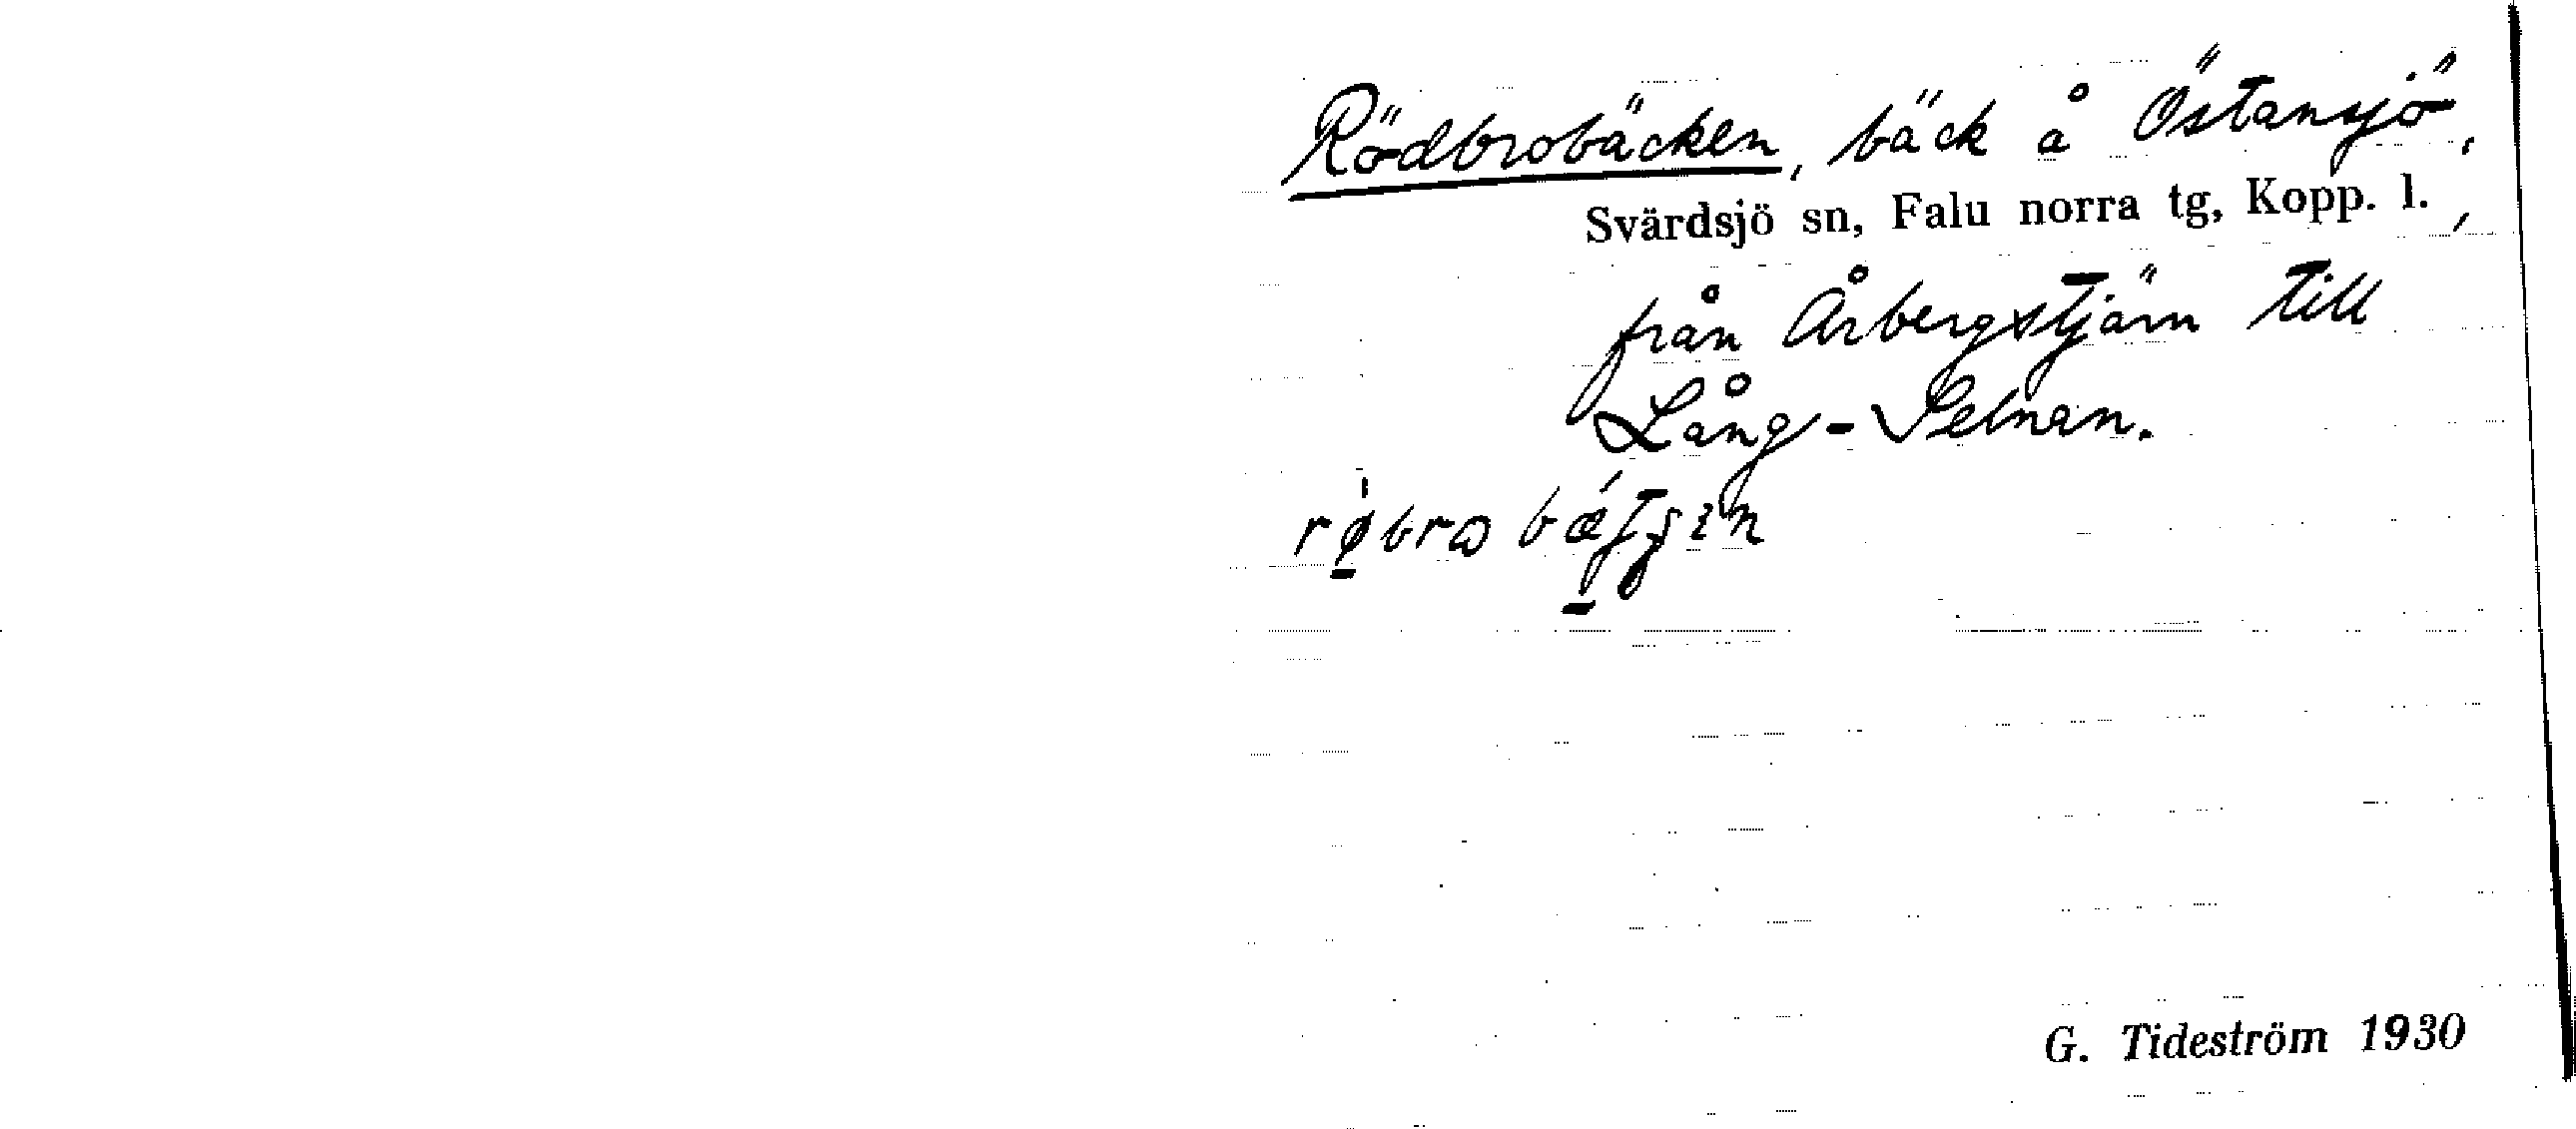 Rödbrobäcken, bäck å Östansjö,
Svärdsjö sn, Falu norra tg, Kopp. l.,
från Årbergstjärn till
Lång-Selnan.
G. Tideström 1930